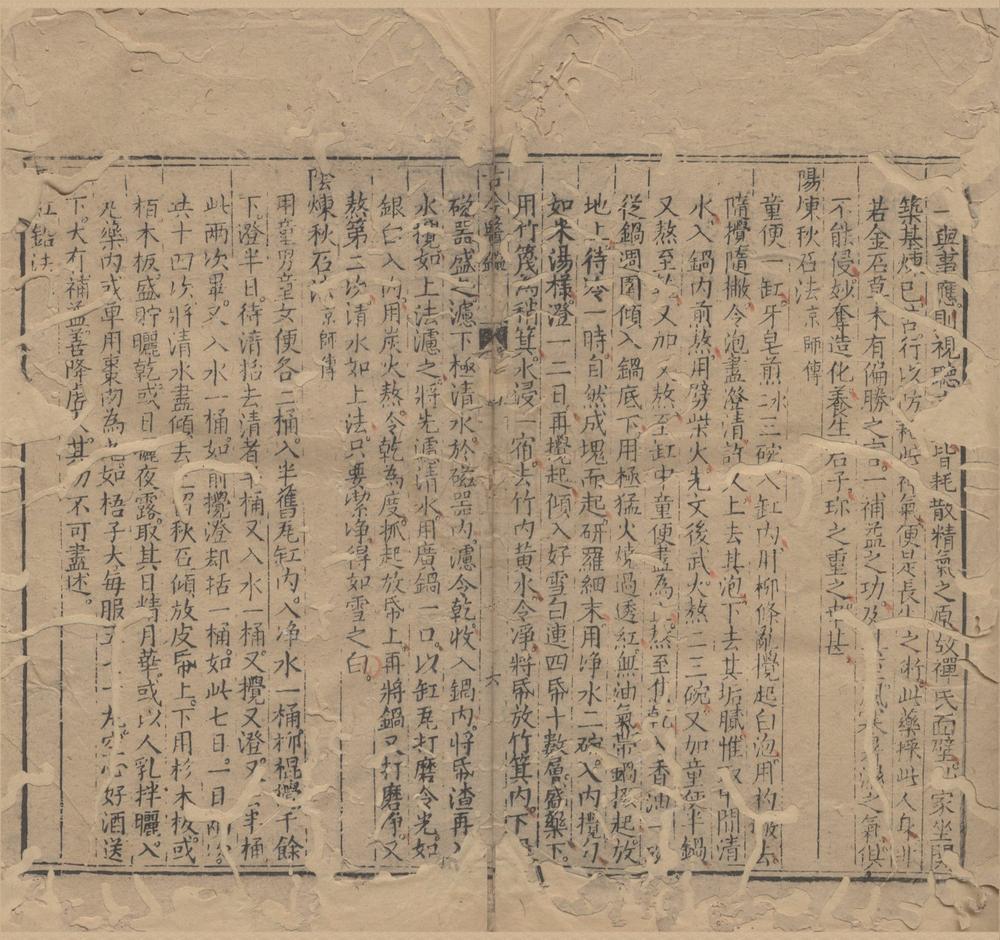 與書應則視聽 皆耗散精氣之原故禪氏面壁 家坐
築基煉己 行以防耗此 氣便是長生之 此藥採此人身
若金石草木有偏勝之 補益之功 之氣俱
不能侵妙奪造化養生 君子珍之重之
陽煉秋石法京師傳
童便一缸牙皂煎 三碗入缸內用柳條亂攪起白泡用杓
隨攪隨撇令泡盡澄清 上去其泡下去其垢膩惟取中間清
水入鍋內煎熬用劈柴火先文後武火熬二三碗又加童便半鍋
又熬至 又加 熬至缸中童便盡為 熬至 入香油一
從鍋週圍傾入鍋底下用極猛火燒過透紅無油氣帶鍋 起放
地上待冷一時自然成塊而起研羅細末用淨水二碗入內攪勻
如米湯樣澄一二日再攪起傾入好雪白連四帋十數層盛藥下
用竹篾為稍箕水浸一宿去竹內黃水令淨將帋放竹箕內下
古今醫鑑 六
磁器盛之濾下極清水於磁器內濾令乾收入鍋內將帋渣再
水攪如上法濾之將先濾清水用廣鍋一口以缸瓦打磨令光如
銀白入內用炭火熬令乾為度抓起放帋上再將鍋又打磨淨又
熬第二次清水如上法只要潔淨得如雪之白
陰煉秋石法京師傳
用童男童女便各二桶入半舊瓦缸內入淨水一桶柳棍攪千餘
下澄半日待清括去清者半桶又入水一桶又攪又澄又 半桶
此兩次畢又入水一桶如前攪澄却括一桶如此七日一日兩次
共十四次將清水盡傾去 秋石傾放皮帋上下用杉木板或
栢木板盛貯曬乾或日曬夜露取其日精月華或以人乳拌曬入
丸藥內或單用棗肉為丸如梧子大每服五 十丸空心好酒送
下大有補益善降虛火其功不可盡述
紅鉛法